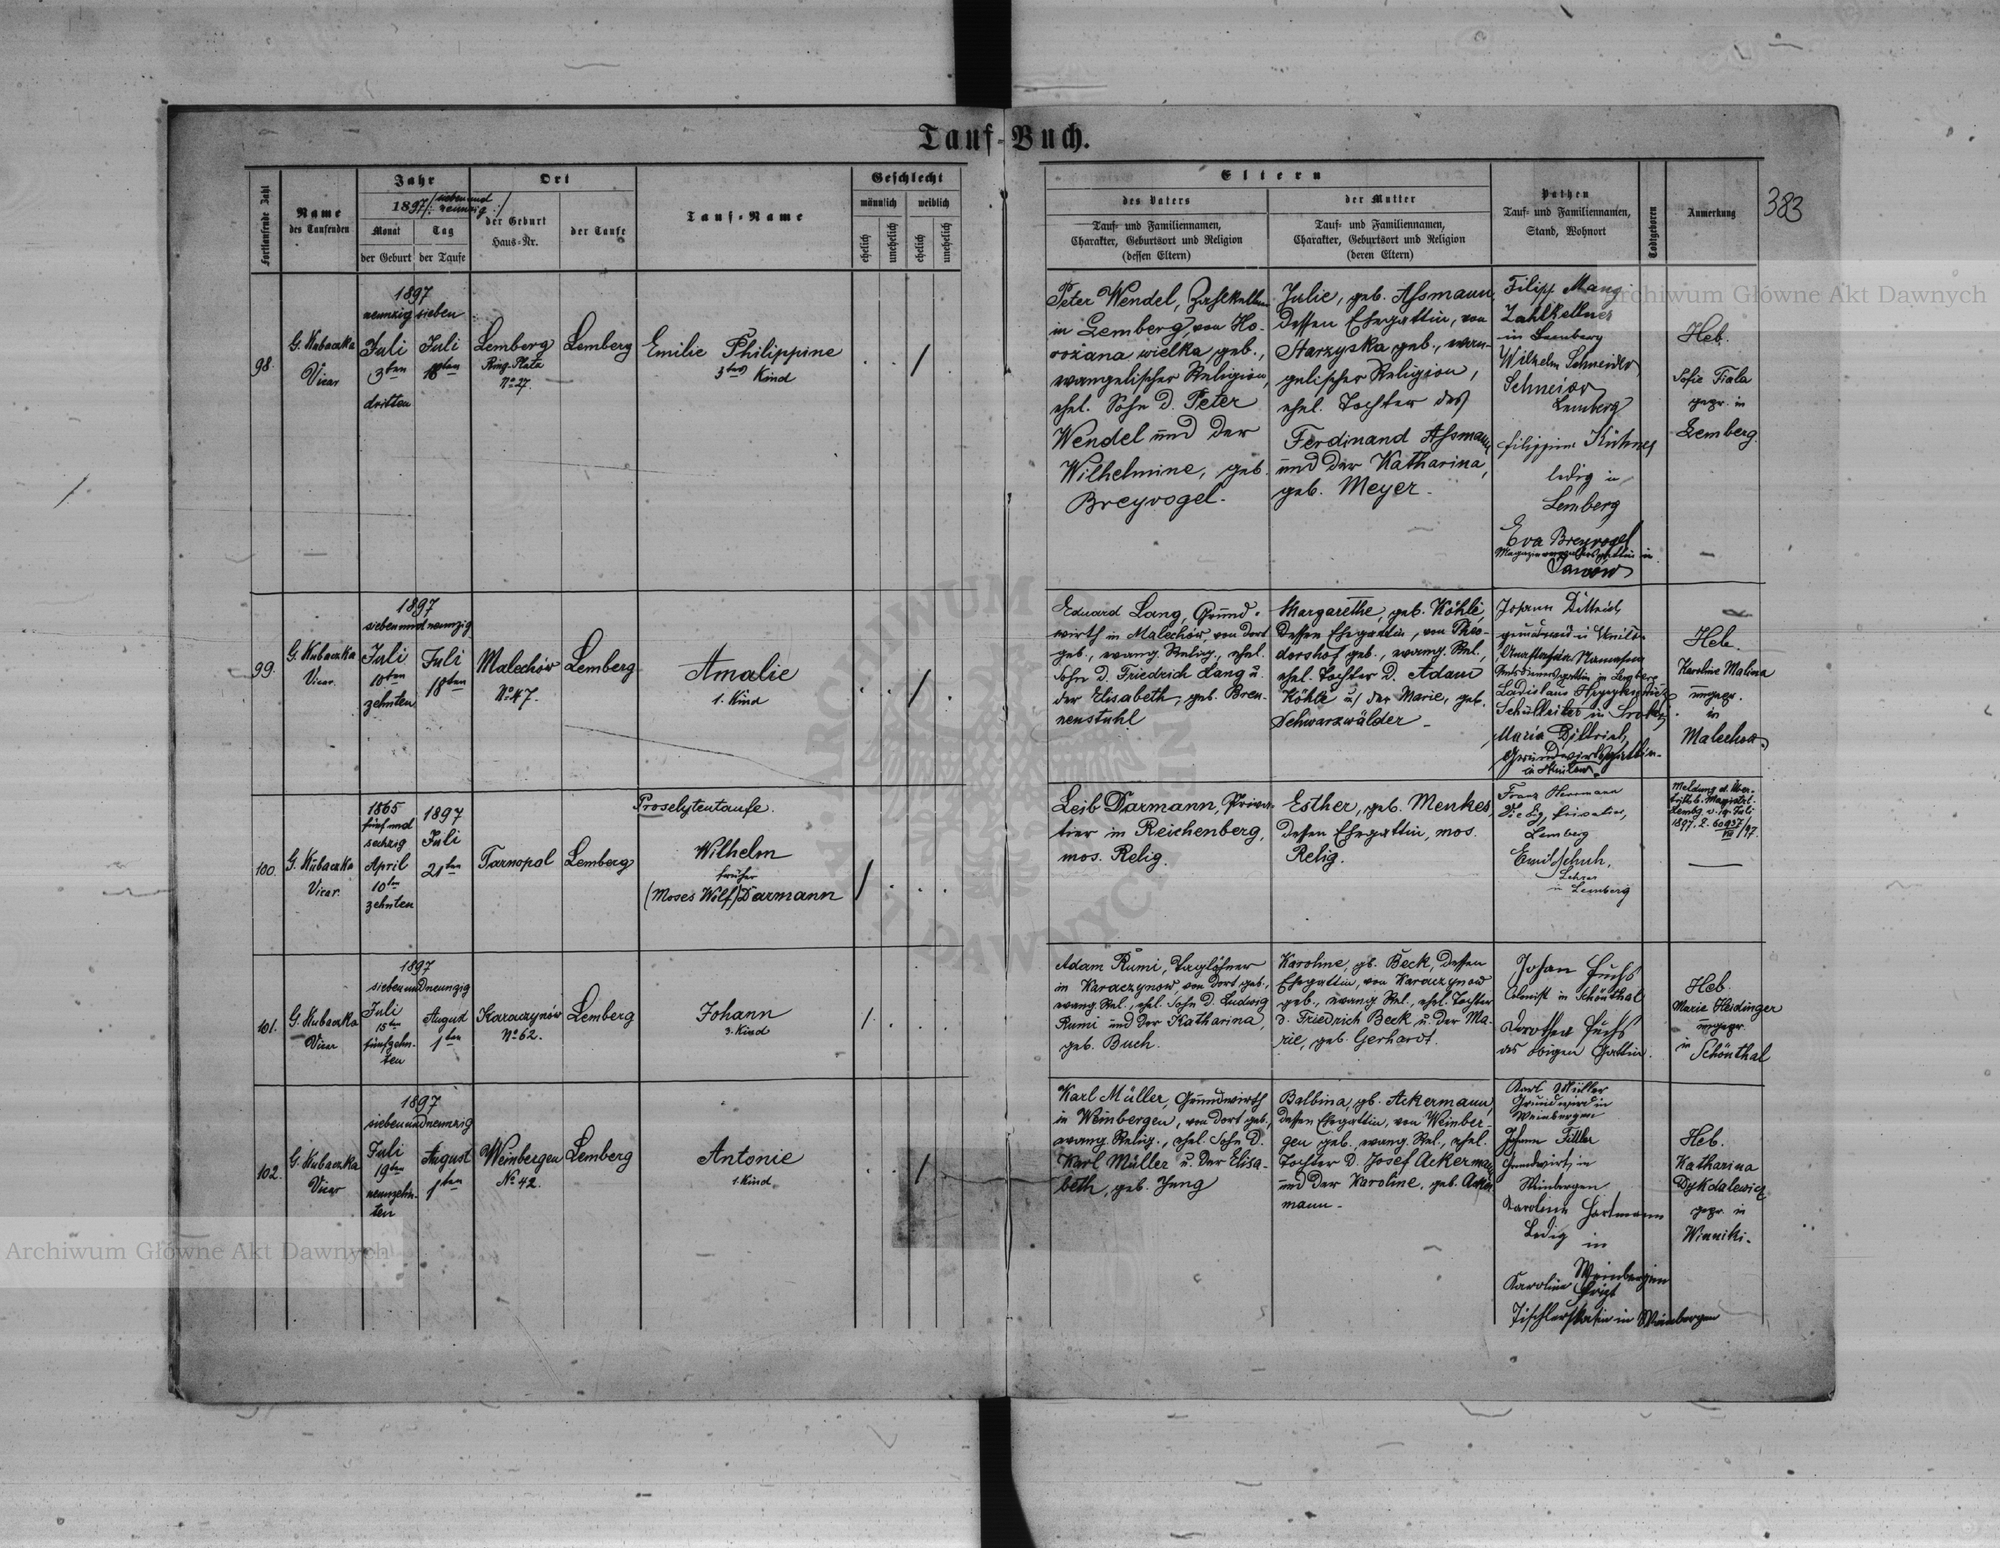 Tauf-Buch.
383
Fortlaufende Zahl
Name
des Taufenden
Jahr
1897 /: sieben und
neunzig :/
Monat
Tag
der Geburt
der Taufe
Ort
der Geburt
Haus-Nr.
der Taufe
Tauf-Name
Geschlecht
männlich
weiblich
ehelich
unehelich
ehelich
unehelich
Eltern
des Vaters
Tauf- und Familiennamen,
Charakter, Geburtsort und Religion
(dessen Eltern)
der Mutter
Tauf- und Familiennamen,
Charakter, Geburtsort und Religion
(deren Eltern)
Pathen
Tauf- und Familiennamen,
Stand, Wohnort
Todtgeboren
Anmerkung
98.
G. Kubaczka
Vicar
1897
neunzig sieben
Juli
3ten
dritten
Juli
18ten
Lemberg
Ring-Platz
No 27
Lemberg
Emilie Philippine
3tes Kind
Peter Wendel, Zahlkellner
in Lemberg, von Ho-
rożana wielka geb.,
evangelischer Religion,
ehel. Sohn d. Peter
Wendel und der
Wilhelmine, geb.
Breyvogel.
Julie, geb. Assmann,
dessen Ehegattin, von
Starzyska geb., evan-
gelischer Religion,
ehel. Tochter des
Ferdinand Assmann
und der Katharina,
geb. Meyer.
Filipp Mang
Zahlkellner
in Lemberg
Wilhelm Schneider
Schneider
Lemberg
Filippine Kühner
ledig in
Lemberg
Eva Breyvogel
in
Janow
Heb.
Sofie Fiala
gepr. in
Lemberg
99.
G. Kubaczka
Vicar.
1897
siebenundneunzig
Juli
10ten
zehnten
Juli
18ten
Malechów
No 47.
Lemberg
Amalie
1. Kind
Eduard Lang, Grund-
wirth in Malechów, von dort
geb., evang. Relig., ehel.
Sohn d. Friedrich Lang u.
der Elisabeth, geb. Bren-
nenstuhl
Margarethe, geb. Köhle,
dessen Ehegattin, von Theo-
dorshof geb., evang. Rel.,
ehel. Tochter d. Adam
Köhle u/ der Marie, geb.
Schwarzwälder
Johann Dittrich
in Lemberg
Ladislaus
in
Maria Dittrich,
Grundwirtsgattin
Heb.
Karoline Malina
ungepr.
in
Malechow
100.
G. Kubaczka
Vicar.
1865
fünf und
sechzig
April
10ten
zehnten
1897
Juli
21ten
Tarnopol
Lemberg
Proselytentaufe.
Wilhelm
früher
(Moses Wolf) Darmann
Leib Darmann, Priva-
tier in Reichenberg,
mos. Relig.
Esther, geb. Menkes,
dessen Ehegattin, mos.
Relig.
Franz Herrmann
Privatier,
Lemberg
Emil Schuh,
Lehrer
in Lemberg
Meldung d. Über-
tritts b. Magistrl.
Lembg. v. 19. Juli
1897. Z. 60937/
VII /97.
101.
G. Kubaczka
Vicar
1897
siebenundneunzig
Juli
15ten
fünfzehn-
ten
August
1ten
Karaczynów
No 62.
Lemberg
Johann
3. Kind
Adam Rumi, Taglöhner
in Karaczynow von dort geb.,
evang. Rel., ehel. Sohn d. Ludwig
Rumi und der Katharina,
geb. Buch.
Karoline, gb. Beck, dessen
Ehegattin, von Karaczynow
geb., evang. Rel., ehel. Tochter
d. Friedrich Beck u. der Ma-
rie, geb. Gerhardt.
Johan Fuchs
Colonist in Schönthal
Dorothea Fuchs
des obigen Gattin.
Heb.
Marie Heidinger
ungepr.
in Schönthal
102.
G. Kubaczka
Vicar
1897
siebenundneunzig
Juli
19ten
neunzehn-
ten
August
1ten
Weinbergen
No 42.
Lemberg
Antonie
1. Kind
Karl Müller, Grundwirth
in Weinbergen, von dort geb.,
evang. Relig., ehel. Sohn d.
Karl Müller u. der Elisa-
beth, geb. Jung
Balbina, gb. Ackermann,
dessen Ehegattin, von Weinber-
gen geb., evang. Rel., ehel.
Tochter d. Josef Ackermann
und der Karoline, geb. Acker-
mann.
Karl Müller
Grundwird in
Weinbergen
Johann
Grundwirt in
Weinbergen
Karoline Hartmann
Ledig in
Weinbergen
Karoline
in Weinbergen
Heb.
Katharina
Dykdalewicz
gepr. in
Winniki.
Archiwum Główne Akt Dawnych
Archiwum Główne Akt Dawnych
ARCHIWUM
AKT DAWNYCH